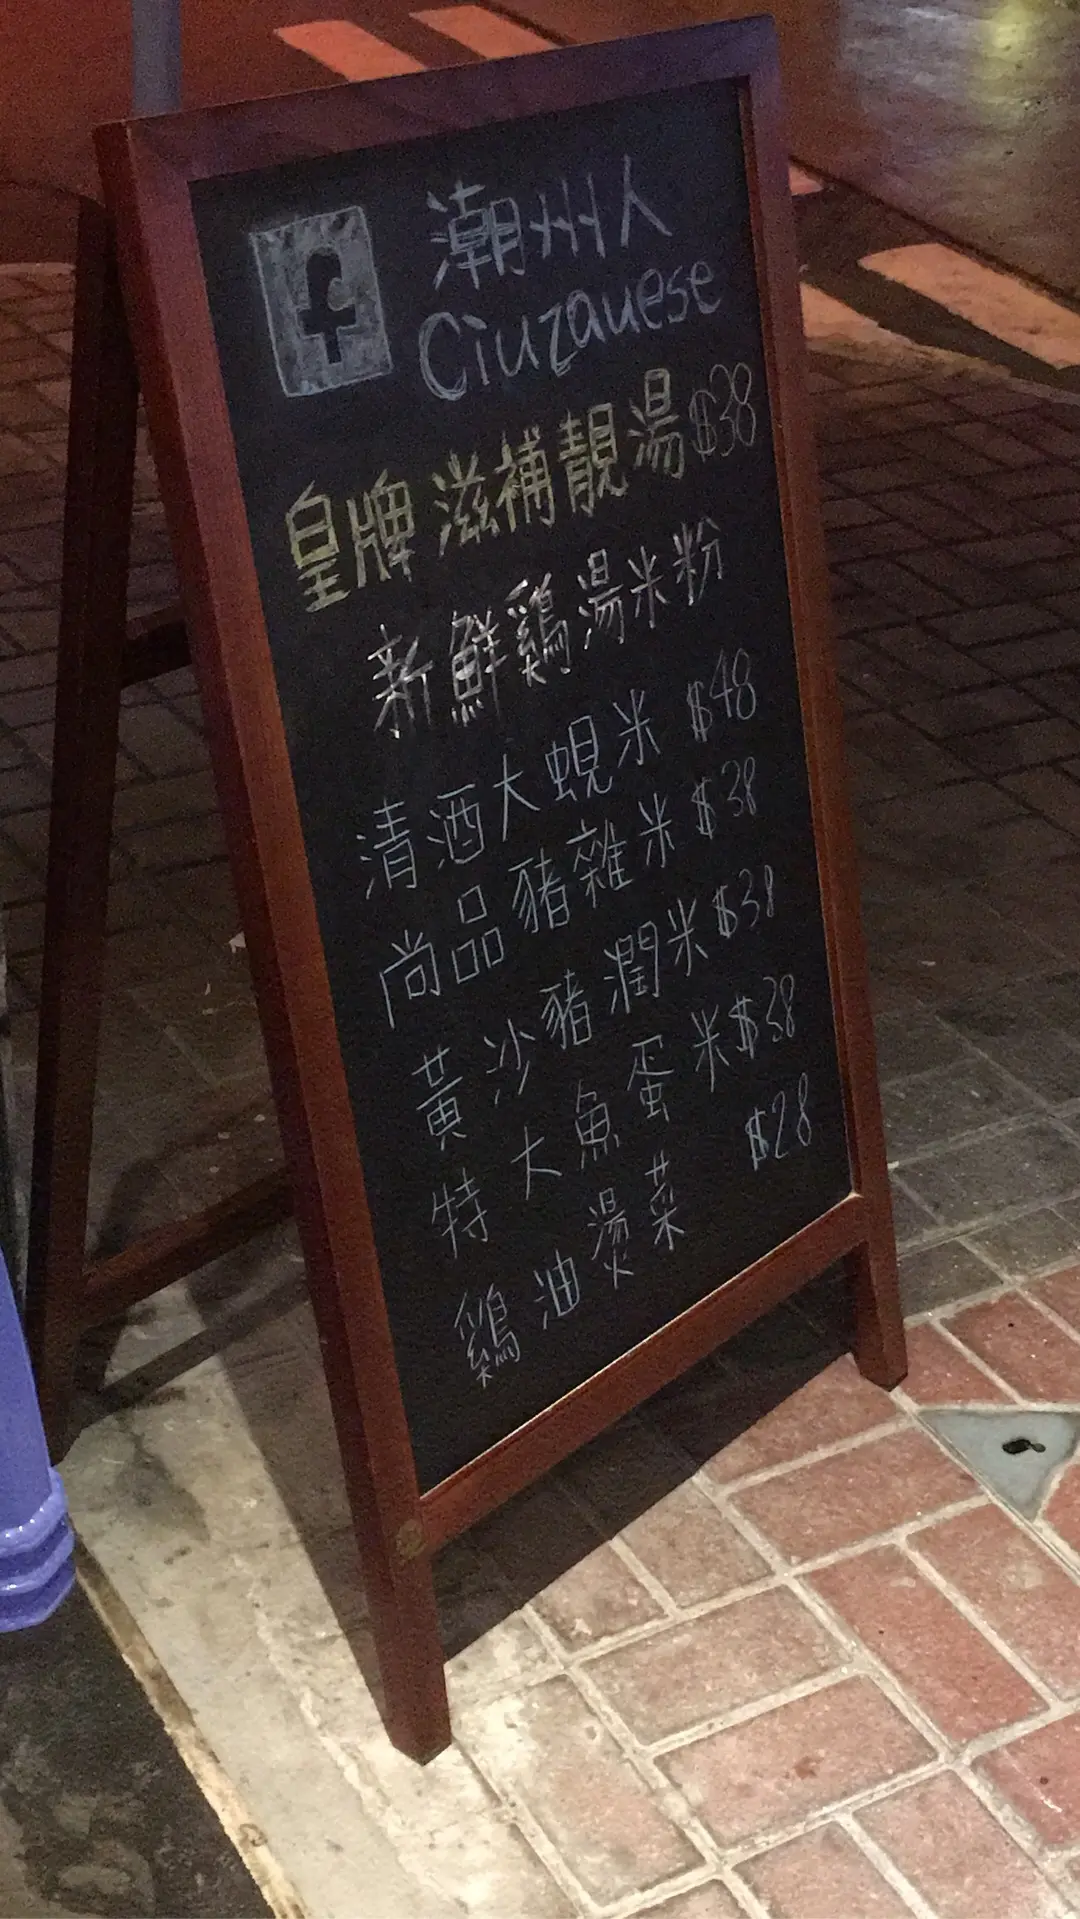 f
潮州人
Ciuzauese
皇牌滋補靚湯$38
新鮮鷄湯米粉
清酒大蜆米 $48
尚品豬雜米 $38
黃沙豬潤米 $38
特大魚蛋米 $38
鷄油燙菜 $28